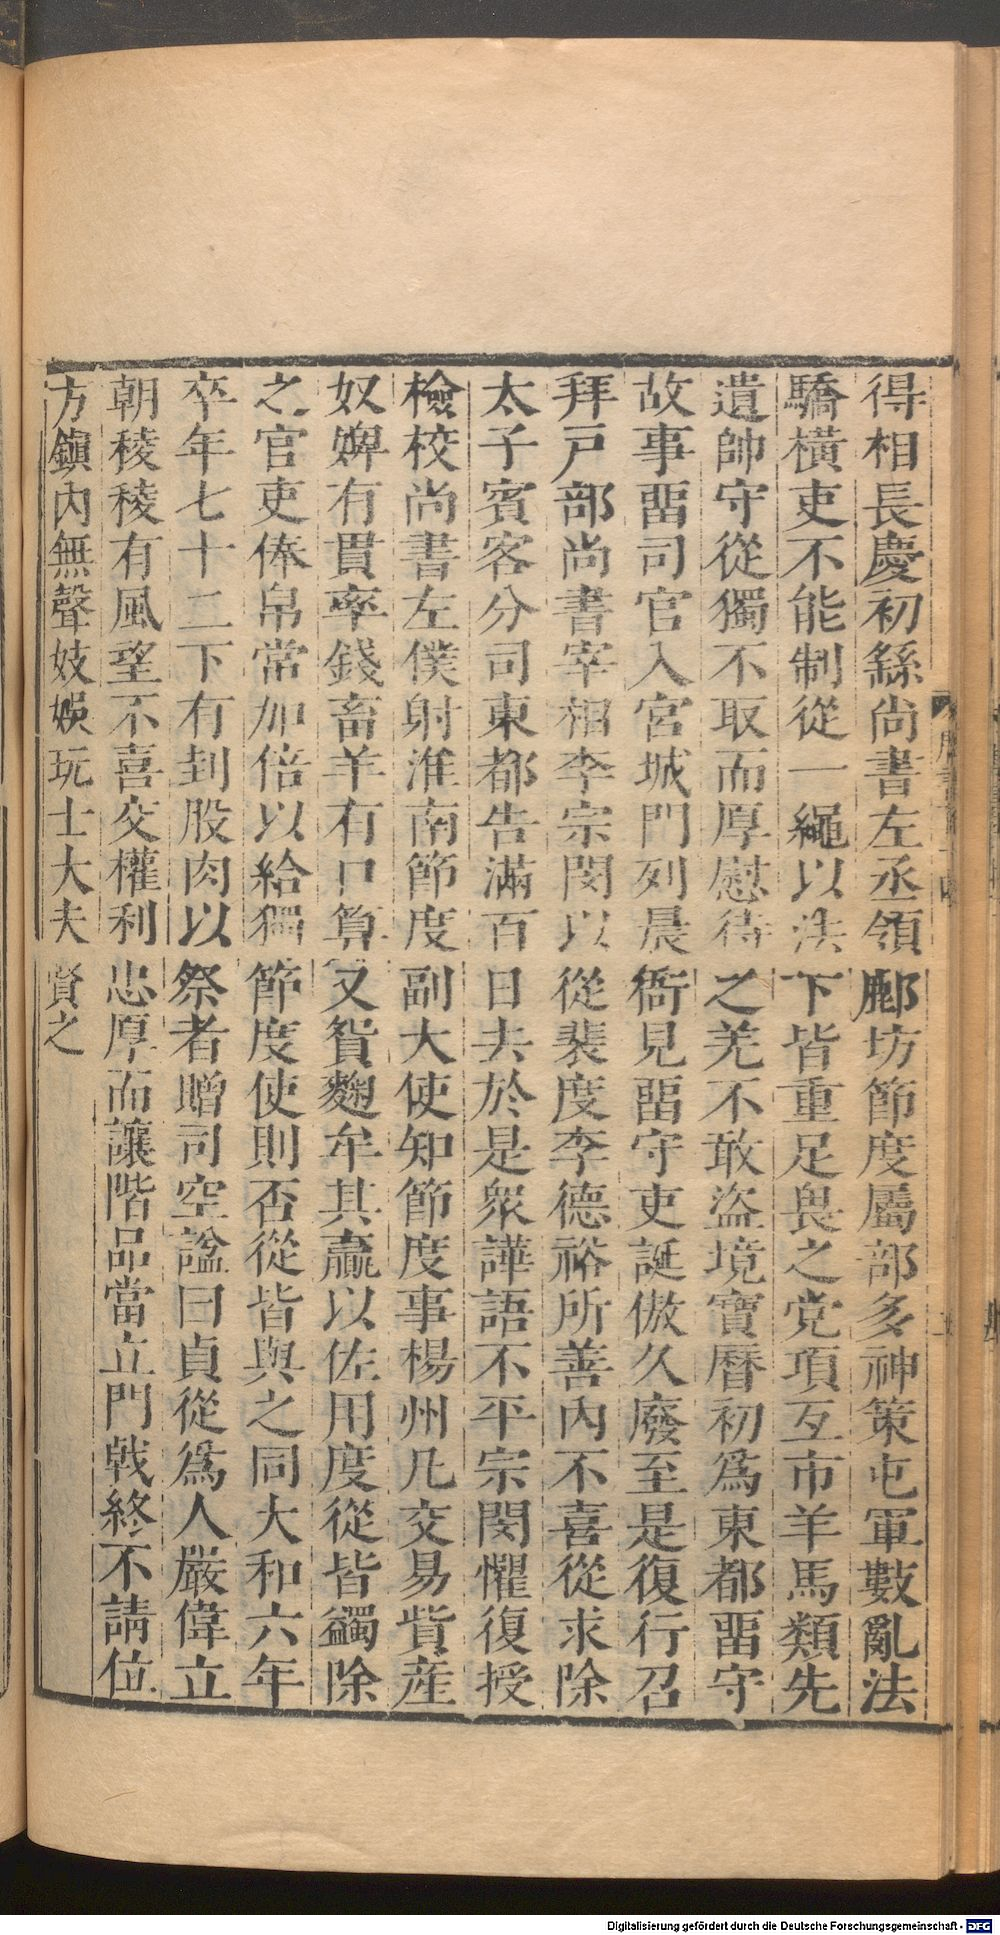 得相長慶初繇尚書左丞領鄜坊節度屬部多神策屯軍數亂法
驕橫吏不能制從一繩以法下皆重足畏之党項互市羊馬類先
遺帥守從獨不取而厚慰待之羌不敢盜境寶曆初爲東都畱守
故事畱司官入宮城門列晨衙見畱守吏誕傲久廢至是復行召
拜戸部尚書宰相李宗閔以從裴度李德裕所善內不喜從求除
太子賓客分司東都告滿百日去於是衆譁語不平宗閔懼復授
檢校尚書左僕射淮南節度副大使知節度事楊州凡交易貲産
奴婢有貫率錢畜羊有口算又貿麴牟其贏以佐用度從皆蠲除
之官吏俸帛常加倍以給獨節度使則否從皆與之同大和六年
卒年七十二下有刲股肉以祭者贈司空諡曰貞從爲人嚴偉立
朝稜稜有風望不喜交權利忠厚而讓階品當立門戟終不請位
方鎭內無聲妓娛玩士大夫賢之
Digitalisierung gefördert durch die Deutsche Forschungsgemeinschaft - DFG